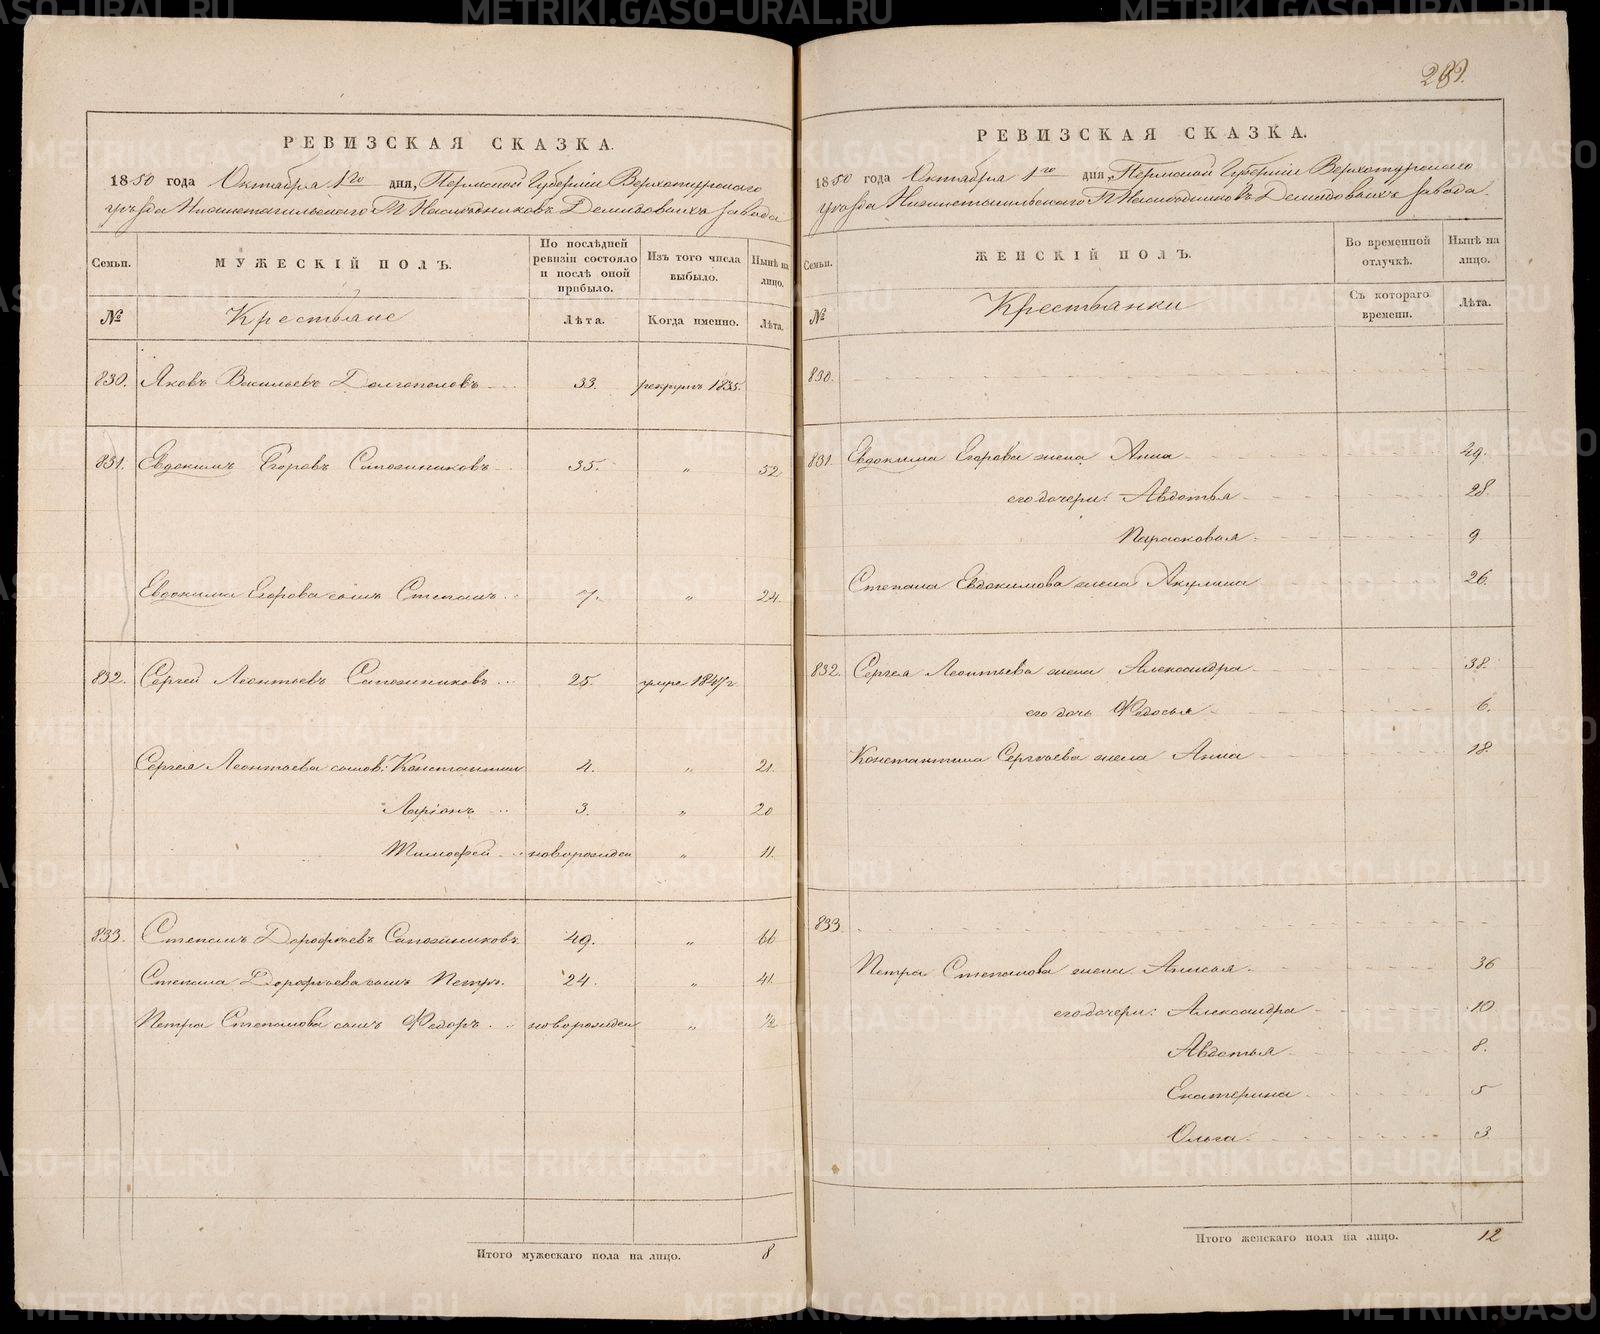 РЕВИЗСКАЯ СКАЗКА.
1850 года Октября 1го дня, Пермской Губерніи Верхотурскаго
уѣзда Нижнетагильскаго Наслѣдниковъ Демидовыхъ завода
Семьи.
МУЖЕСКІЙ ПОЛЪ.
По послѣдней ревизіи состояло и послѣ оной прибыло.
Изъ того числа выбыло.
Нынѣ на лицо.
№
Крестьяне
Лѣта.
Когда именно.
Лѣта.
830. Яковъ Васильевъ Долгополовъ 33. рекрутъ 1835.
831. Евдокимъ Егоровъ Сапожниковъ 35. " 52
Евдокима Егорова сынъ Степанъ 7. " 24.
832. Сергей Леонтьевъ Сапожниковъ 25. умре 1847 г
Сергея Леонтьева сынов: Константин 4. " 21.
Ларіонъ 3. " 20
Тимофей новорожден " 11.
833. Степанъ Дорофѣевъ Сапожниковъ 49. " 66
Степана Дорофѣева сынъ Петръ. 24. " 41.
Петра Степанова сынъ Федоръ новорожден " 1/2
Итого мужескаго пола на лицо. 8
282.
РЕВИЗСКАЯ СКАЗКА.
1850 года Октября 1го дня, Пермской Губерніи Верхотурскаго
уѣзда Нижнетагильскаго Наслѣдниковъ Демидовыхъ завода.
Семьи.
ЖЕНСКІЙ ПОЛЪ.
Во временной отлучкѣ.
Нынѣ на лицо.
№
Крестьянки
Съ котораго времени.
Лѣта.
830.
831. Евдокима Егорова жена Анна 49.
его дочери: Авдотья 28.
Парасковья 9
Степана Евдокимова жена Акулина 26.
832. Сергея Леонтьева жена Александра 38.
его дочь Федосья 6.
Константина Сергѣева жена Анна 18.
833.
Петра Степанова жена Анисья 36
его дочери: Александра 10
Авдотья 8.
Екатерина 5
Ольга. 3
Итого женскаго пола на лицо. 12
METRIKI.GASO-URAL.RU